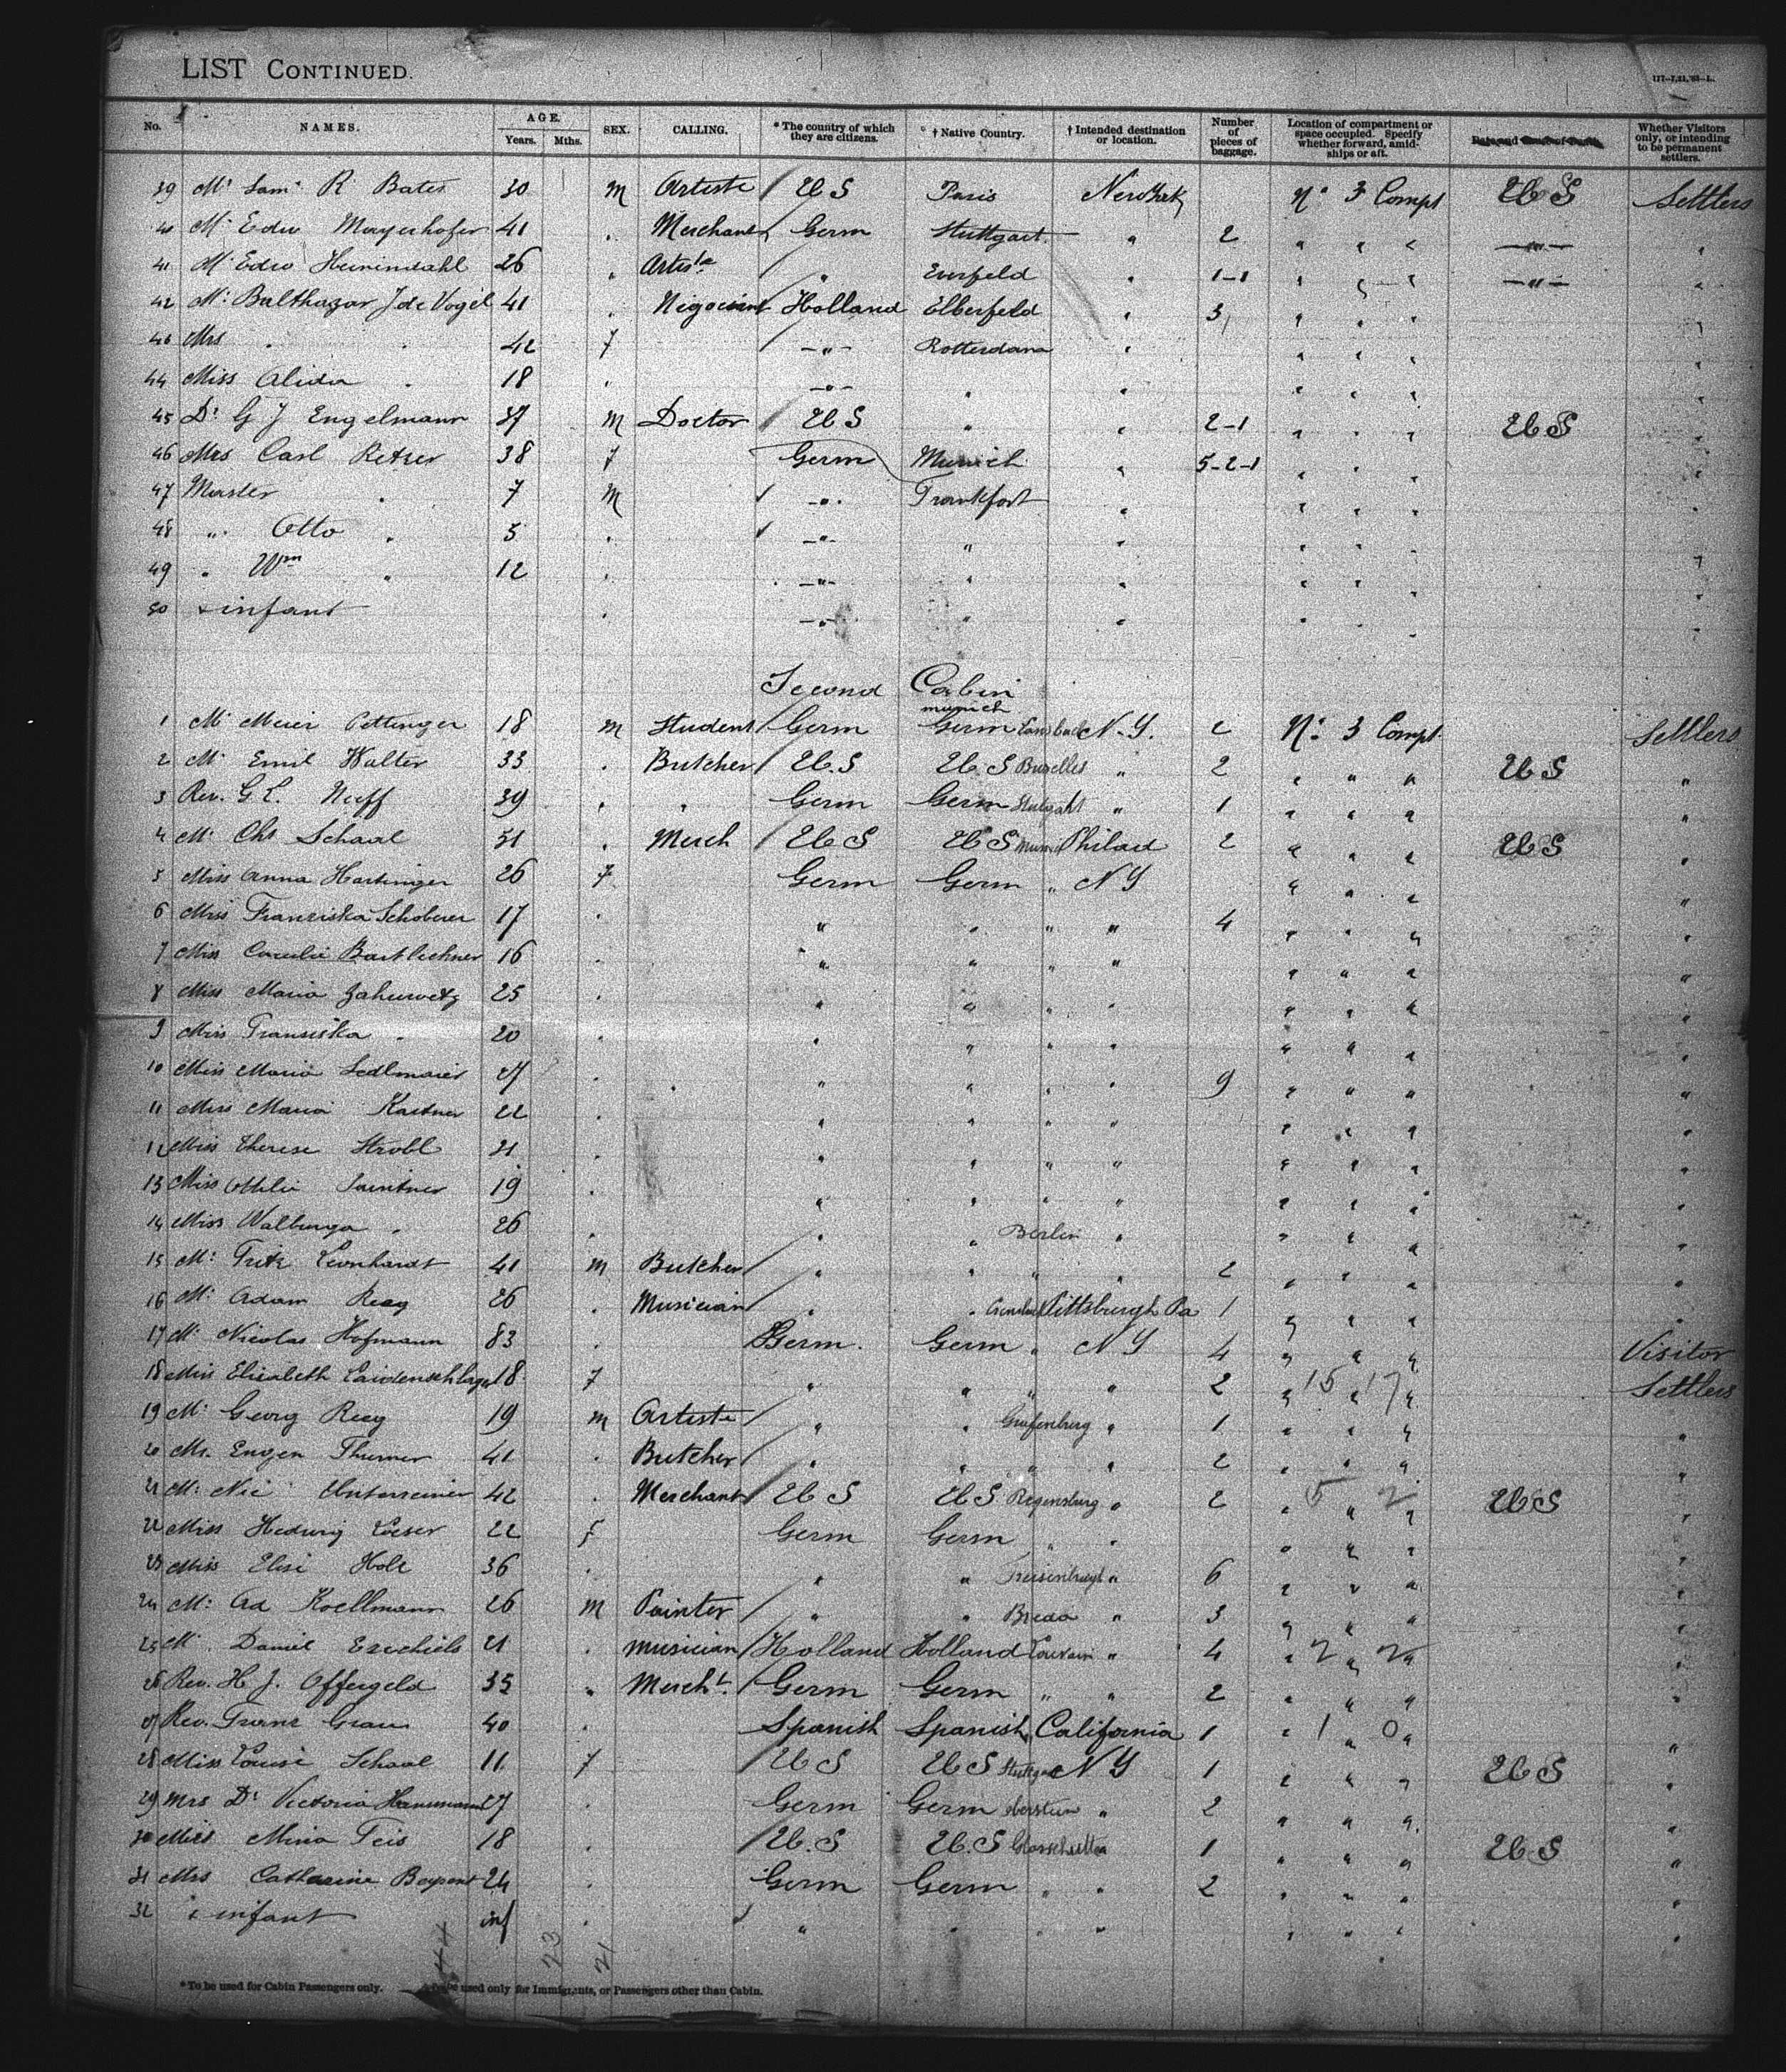 LIST CONTINUED.
No. NAMES. AGE. Years. Mths. SEX. CALLING. * The country of which they are citizens. † Native Country. † Intended destination or location. Number of pieces of baggage. Location of compartment or space occupied. Specify whether forward, amidships or aft. Whether Visitors only, or intending to be permanent settlers.
39 Mr Saml R Bates 30 M Artiste / U S Paris New York No 3 Compt U S Settlers
40 Mr Edw Mayerhofer 41 " Merchant Germ Stuttgart " 2 " " " —"— "
41 Mr Edw 26 " Artiste " " 1-1 " " " —"— "
42 Mr Balthazar J de Vogel 41 " Holland Elberfeld " 3 " " " "
Mrs " " 42 f —"— Rotterdam " " " " "
44 Miss Alida " 18 " —"— " " " " " "
45 Dr G J Engelmann 37 M Doctor / U S " " 2-1 " " " U S "
46 Mrs Carl Retzer 38 f Germ Munich " 5-2-1 " " " "
47 Master " 7 M —"— Frankfort " " " " "
48 " Otto " 5 " —"— " " " " " "
49 " Wm " 12 " —"— " " " " " "
50 & infant " —"— " " " " " "
Second Cabin
Munich
1 Mr Meier Oettinger 18 M Student / Germ Germ N.Y. 2 No 3 Compt Settlers
2 Mr Emil Walter 33 " Butcher / U.S U.S " 2 " " " U S "
3 Rev. G. L. Neff 39 " " Germ Germ " 1 " " " "
4 Mr Chs Schaal 51 " Merch / U S U S Philad 2 " " " U S "
5 Miss Anna Hartinger 26 f Germ Germ " N Y " " " "
6 Miss Franziska Schoberer 17 " " " " " 4 " " " "
7 Miss 16 " " " " " " " " "
8 Miss Maria 25 " " " " " " " " "
9 Miss Franziska " 20 " " " " " " " " "
10 Miss Maria Sedlmaier 27 " " " " " 9 " " " "
11 Miss Maria Kastner 22 " " " " " " " " "
12 Miss Therese Strobl 21 " " " " " " " " "
13 Miss Ottilie 19 " " " " " " " " "
14 Miss Walburga " 26 " " " Berlin " " " " "
15 Mr Fritz Leonhardt 41 M Butcher / " " " " 2 " " " "
16 Mr Adam Reeg 26 " Musician / " " Pittsburgh Pa 1 " " " "
17 Mr Nicolas Hofmann 83 " Germ. Germ " N Y 4 " " " Visitor
18 Miss Elisabeth 18 f " " " " 2 " 15 " 17 " Settlers
19 Mr Georg Reeg 19 M Artiste / " " Grafenberg " 1 " " " "
20 Mr. Eugen Thurner 41 " Butcher / " " " " 2 " " " "
21 Mr Nic 42 " Merchant / U S U S Regensburg " 2 " 5 " 2 " U S "
22 Miss Hedwig Loeser 22 f Germ Germ " " " " " "
23 Miss Elise Hole 36 " " " " 6 " " " "
24 Mr Ad Koellmann 26 M Painter / " " Breda " 3 " " " "
25 Mr Daniel Ezechiels 21 " Musician / Holland Holland Louvain " 4 " 2 " 2 " "
26 Rev. H J. Offergeld 35 " Mercht. / Germ Germ " " 2 " " " "
27 Rev. Franz Grau 40 " Spanish Spanish " California 1 " 1 " 0 " "
28 Miss Louise Schaal 11 f / U S U S Stuttgart N Y 1 " " " U S "
29 Mrs Dr Victoria 27 " Germ Germ " 2 " " " "
30 Miss Mina Teis 18 " / U.S U.S " 1 " " " U S "
31 Mrs Catharine 24 " Germ Germ " " 2 " " " "
32 & infant inf " " " " " " " " "
44 23 21
*To be used for Cabin Passengers only. † To be used only for Immigrants, or Passengers other than Cabin.